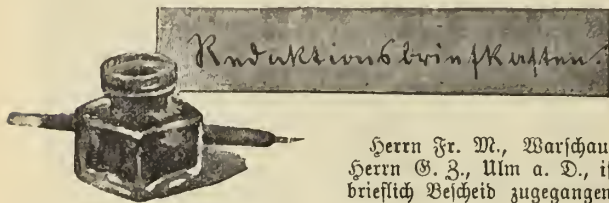 Redaktionsbriefkasten.
Herrn Fr. M., Warschau
Herrn G. Z., Ulm a. D., iſ
brieflich Beſcheid zugegangen